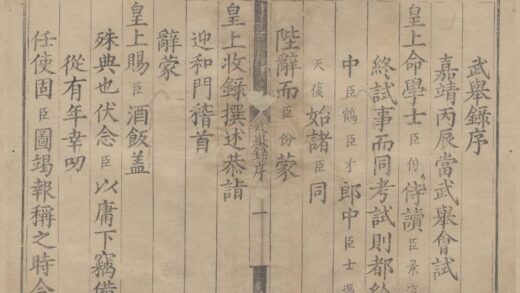 武舉錄序
嘉靖丙辰當武舉會試
皇上命學士臣份侍讀臣景
終試事而同考試則都給
中臣鶴臣才郎中臣士
天復始諸臣同
陛辭而臣份蒙
武舉錄序 一
皇上收錄撰述恭詣
迎和門稽首
辭蒙
皇上賜臣酒飯蓋
殊典也伏念臣以庸下竊備
從有年幸叨
任使固臣圖竭報稱之時今